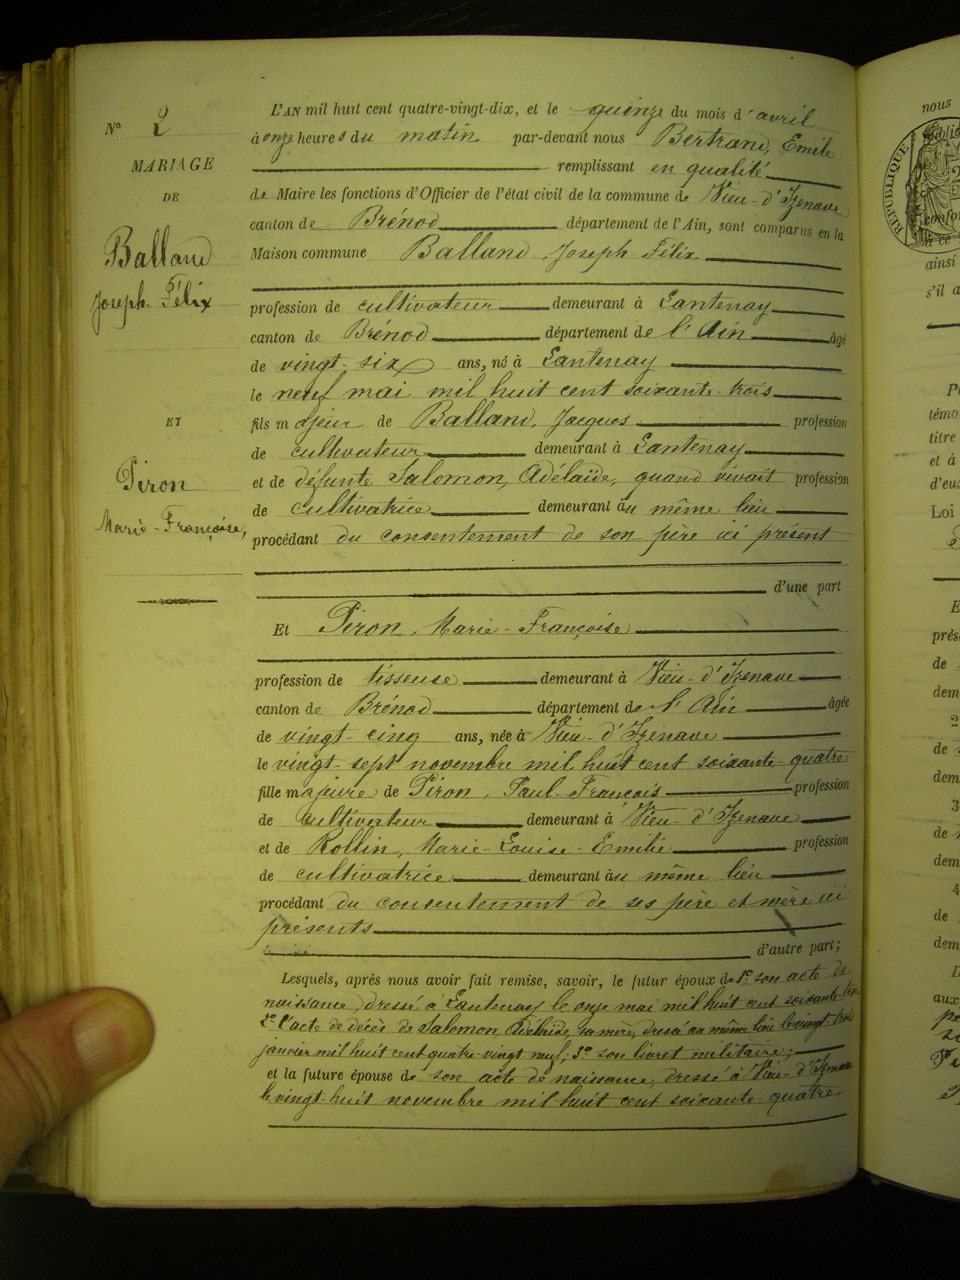 N° 2
MARIAGE
DE
Balland
Joseph-Félix
ET
Piron
Marie-Françoise,
L'AN mil huit cent quatre-vingt-dix, et le quinze du mois d'avril
à onze heures du matin par-devant nous Bertrand, Emile
remplissant en qualité
de Maire les fonctions d'Officier de l'état civil de la commune de Vieu-d'Izenave
canton de Brénod département de l'Ain, sont comparus en la
Maison commune Balland Joseph-Félix
profession de cultivateur demeurant à Lantenay
canton de Brénod département de l'Ain âgé
de vingt-six ans, né à Lantenay
le neuf mai mil huit cent soixante-trois
fils majeur de Balland, Jacques profession
de cultivateur demeurant à Lantenay
et de défunte Salomon, Adélaïde, quand vivait profession
de cultivatrice demeurant au même lieu
procédant du consentement de son père ici présent
d'une part
Et Piron, Marie-Françoise
profession de tisseuse demeurant à Vieu-d'Izenave
canton de Brénod département de l'Ain âgée
de vingt-cinq ans, née à Vieu-d'Izenave
le vingt-sept novembre mil huit cent soixante-quatre
fille majeure de Piron, Paul-François profession
de cultivateur demeurant à Vieu-d'Izenave
et de Rollin, Marie-Louise-Emilie profession
de cultivatrice demeurant au même lieu
procédant du consentement de ses père et mère ici
présents
d'autre part;
Lesquels, après nous avoir fait remise, savoir, le futur époux de 1° son acte de
naissance, dressé à Lantenay le onze mai mil huit cent soixante-trois
2° l'acte de décès de Salomon Adélaïde, sa mère, dressé au même lieu le vingt-trois
janvier mil huit cent quatre-vingt neuf; 3° son livret militaire;
et la future épouse de son acte de naissance, dressé à Vieu-d'Izenave
le vingt-huit novembre mil huit cent soixante-quatre
nous
RÉPUBLIQUE
ainsi
s'il a
témo
titre
et à
d'eus
Loi
prés
de
dem
de
dem
de
dem
de
dem
aux